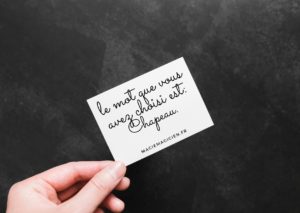 le mot que vous
avez choisi est:
Chapeau.
MACIEMAGICIEN.FR